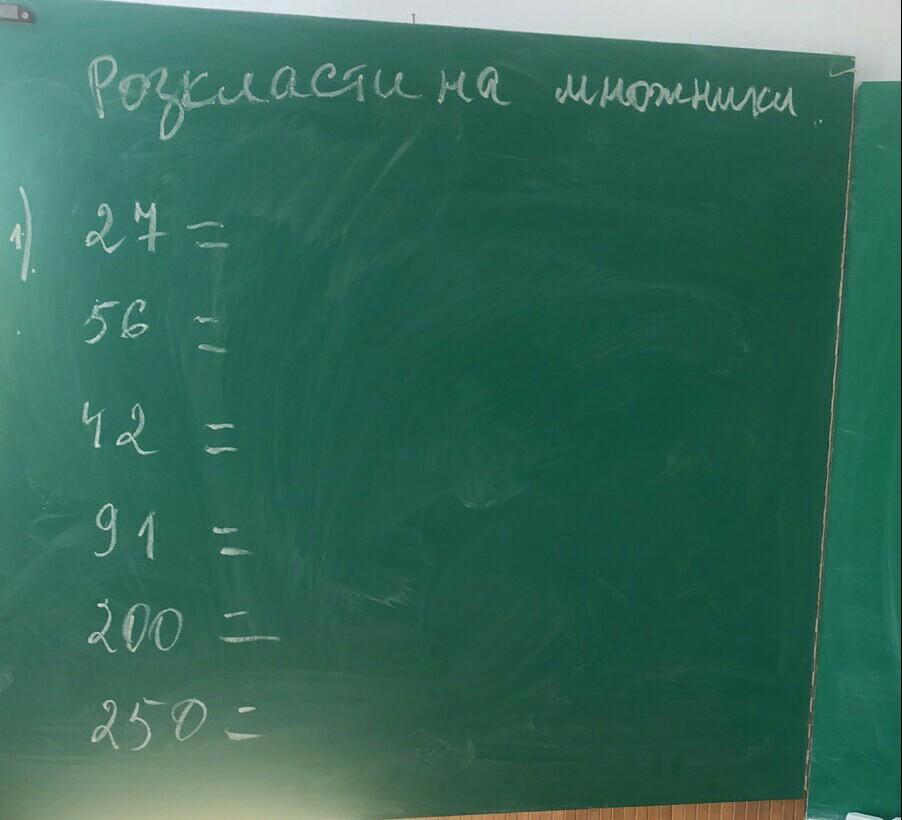 Розкласти на множники.
1) 27 =
56 =
42 =
91 =
200 =
250 =